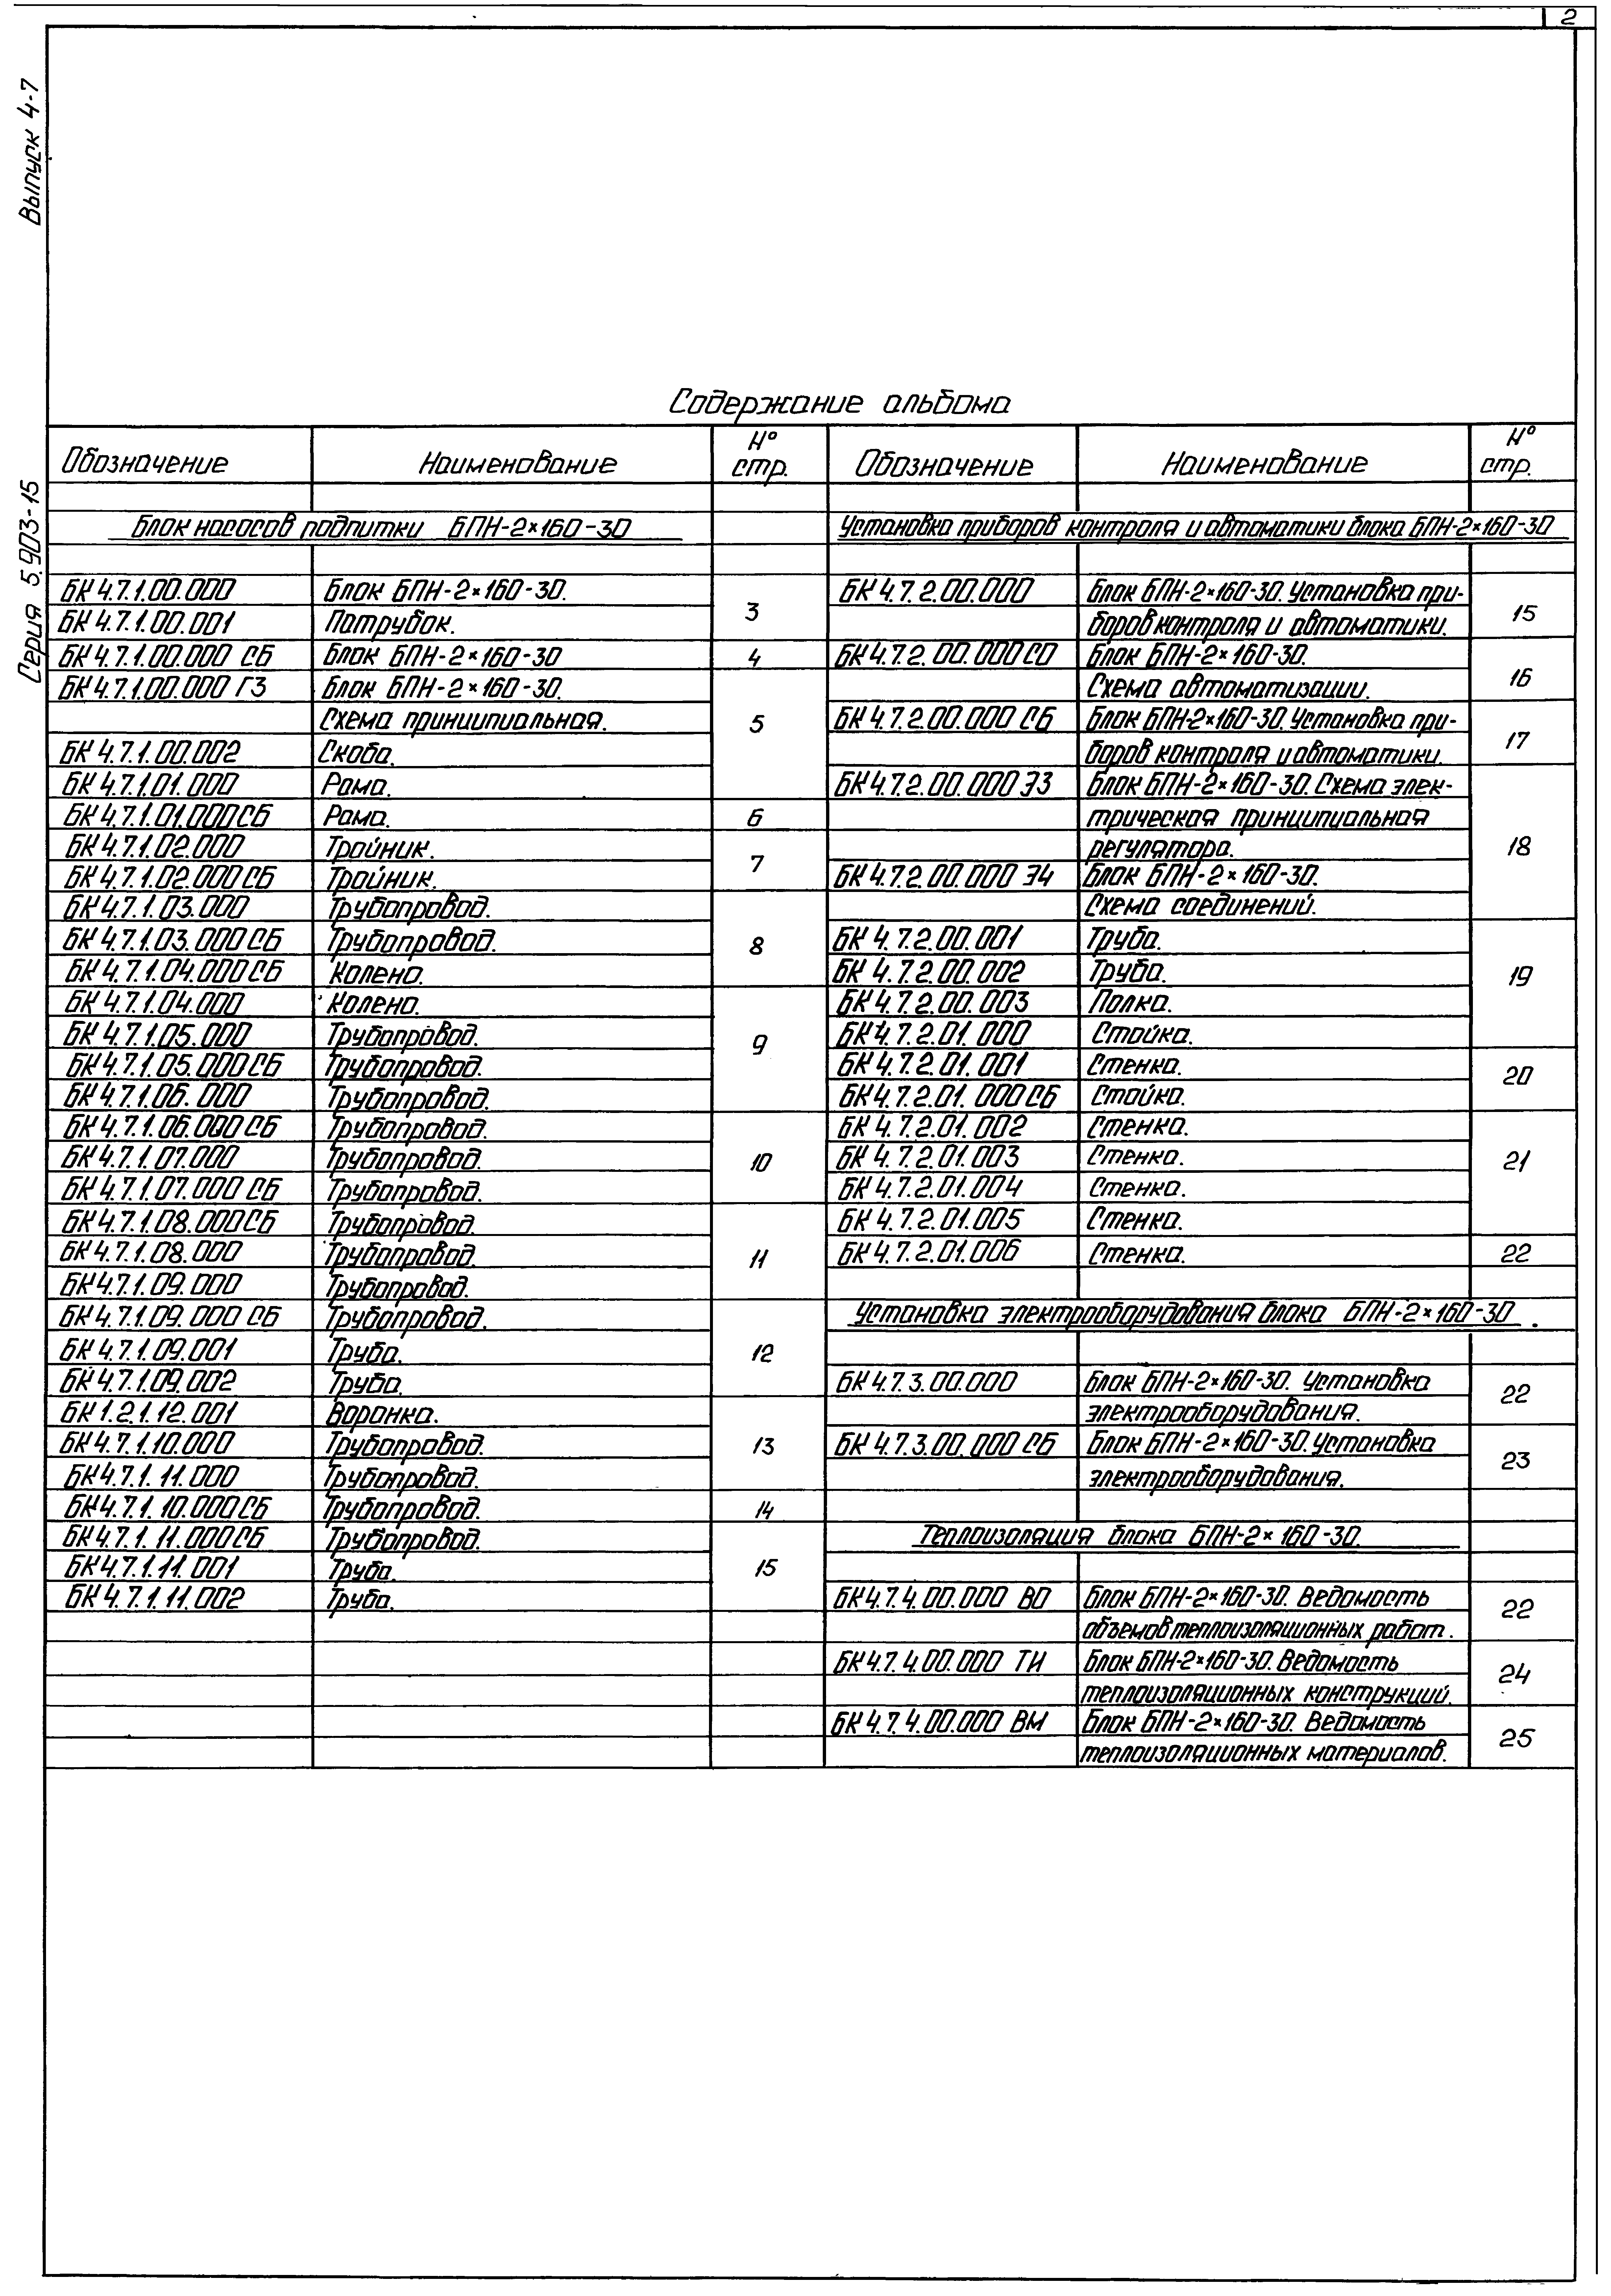 2
Выпуск 4-7
Серия 5.903-15
Содержание альбома
Обозначение Наименование № стр.
Блок насосов подпитки БПН-2×160-30
БК 4.7.1.00.000 Блок БПН-2×160-30. 3
БК 4.7.1.00.001 Патрубок.
БК 4.7.1.00.000 СБ Блок БПН-2×160-30 4
БК 4.7.1.00.000 ГЗ Блок БПН-2×160-30. 5
Схема принципиальная.
БК 4.7.1.00.002 Скоба.
БК 4.7.1.01.000 Рама.
БК 4.7.1.01.000СБ Рама. 6
БК 4.7.1.02.000 Тройник. 7
БК 4.7.1.02.000СБ Тройник.
БК 4.7.1.03.000 Трубопровод. 8
БК 4.7.1.03.000СБ Трубопровод.
БК 4.7.1.04.000СБ Колено.
БК 4.7.1.04.000 Колено. 9
БК 4.7.1.05.000 Трубопровод.
БК 4.7.1.05.000СБ Трубопровод.
БК 4.7.1.06.000 Трубопровод.
БК 4.7.1.06.000СБ Трубопровод. 10
БК 4.7.1.07.000 Трубопровод.
БК 4.7.1.07.000 СБ Трубопровод.
БК 4.7.1.08.000СБ Трубопровод. 11
БК 4.7.1.08.000 Трубопровод.
БК 4.7.1.09.000 Трубопровод.
БК 4.7.1.09.000 СБ Трубопровод. 12
БК 4.7.1.09.001 Труба.
БК 4.7.1.09.002 Труба.
БК 1.2.1.12.001 Воронка. 13
БК 4.7.1.10.000 Трубопровод.
БК 4.7.1.11.000 Трубопровод.
БК 4.7.1.10.000СБ Трубопровод. 14
БК 4.7.1.11.000СБ Трубопровод. 15
БК 4.7.1.11.001 Труба.
БК 4.7.1.11.002 Труба.
Обозначение Наименование № стр.
Установка приборов контроля и автоматики блока БПН-2×160-30
БК 4.7.2.00.000 Блок БПН-2×160-30. Установка при- 15
боров контроля и автоматики.
БК 4.7.2.00.000СО Блок БПН-2×160-30. 16
Схема автоматизации.
БК 4.7.2.00.000 СБ Блок БПН-2×160-30. Установка при- 17
боров контроля и автоматики.
БК 4.7.2.00.000 Э3 Блок БПН-2×160-30. Схема элек- 18
трическая принципиальная
регулятора.
БК 4.7.2.00.000 Э4 Блок БПН-2×160-30.
Схема соединений.
БК 4.7.2.00.001 Труба. 19
БК 4.7.2.00.002 Труба.
БК 4.7.2.00.003 Полка.
БК 4.7.2.01.000 Стойка.
БК 4.7.2.01.001 Стенка. 20
БК 4.7.2.01.000СБ Стойка.
БК 4.7.2.01.002 Стенка. 21
БК 4.7.2.01.003 Стенка.
БК 4.7.2.01.004 Стенка.
БК 4.7.2.01.005 Стенка.
БК 4.7.2.01.006 Стенка. 22
Установка электрооборудования блока БПН-2×160-30.
БК 4.7.3.00.000 Блок БПН-2×160-30. Установка 22
электрооборудования.
БК 4.7.3.00.000 СБ Блок БПН-2×160-30. Установка 23
электрооборудования.
Теплоизоляция блока БПН-2×160-30.
БК 4.7.4.00.000 ВО Блок БПН-2×160-30. Ведомость 22
объемов теплоизоляционных работ.
БК 4.7.4.00.000 ТИ Блок БПН-2×160-30. Ведомость 24
теплоизоляционных конструкций.
БК 4.7.4.00.000 ВМ Блок БПН-2×160-30. Ведомость 25
теплоизоляционных материалов.